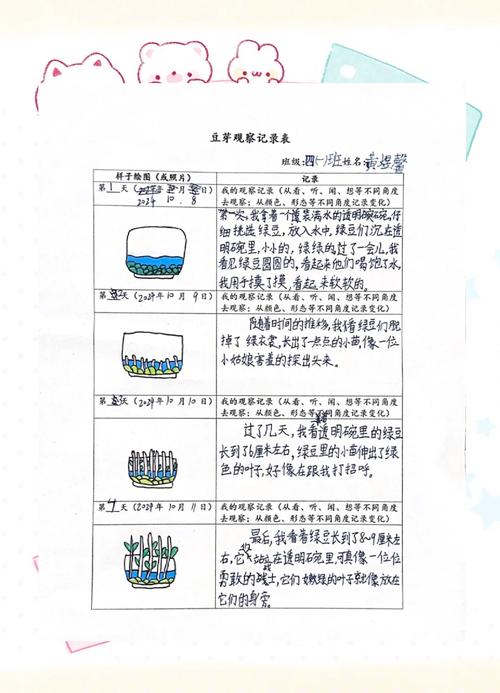 豆芽观察记录表
班级:四(一)班姓名:黄煜馨
样子绘图(或照片)
记录
第1天(2024年10月8日)
2024 10. 8
我的观察记录(从看、听、闻、想等不同角度
去观察;从颜色、形态等不同角度记录变化)
第一次,我拿着一个盛装满水的透明碗,仔
细挑选绿豆,放入水中,绿豆们沉在透
明碗里,小小的,绿绿的,过了一会儿,我
看见绿豆圆圆的,看起来他们喝饱了水,
我用手摸了摸,看起来软软的。
第2天(2024年10月9日)
我的观察记录(从看、听、闻、想等不同角度
去观察;从颜色、形态等不同角度记录变化)
随着时间的推移,我看绿豆们脱
掉了绿衣裳,长出了一点点的小苗,像一位
小姑娘害羞的探出头来。
第3天(2024年10月10日)
我的观察记录(从看、听、闻、想等不同角度
去观察;从颜色、形态等不同角度记录变化)
过了几天,我看透明碗里的绿豆
长到了6厘米左右,绿豆里的小苗伸出了绿
色的叶子,好像在跟我打招呼。
第4天(2024年10月11日)
我的观察记录(从看、听、闻、想等不同角度
去观察;从颜色、形态等不同角度记录变化)
最后,我看着绿豆长到了8~9厘米左
右,它们站在透明碗里,可真像一位位
勇敢的战士,它们嫩绿的叶子就像放在
它们的身旁。